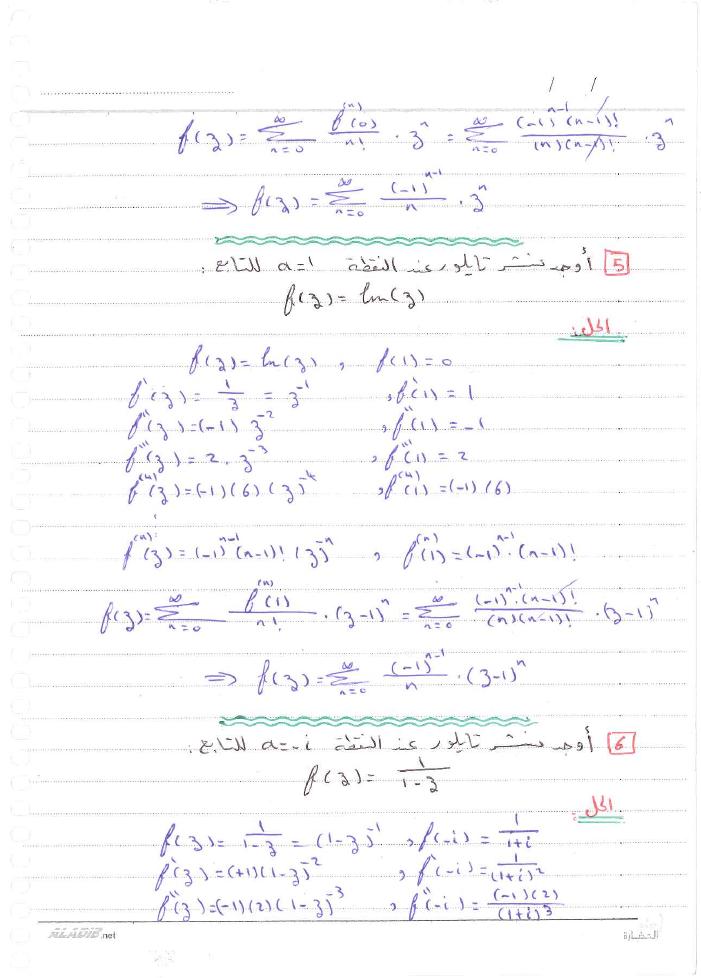 / /
f(z) = ∑_{n=0}^{∞} f^{(n)}(0)/n! · z^n = ∑_{n=0}^{∞} (-1)^{n-1} (n-1)!/(n)(n-1)! · z^n
⟹ f(z) = ∑_{n=0}^{∞} (-1)^{n-1}/n · z^n
5 أوجد منشر تايلور عند النقطة a=1 للتابع:
f(z) = ln(z)
الحل:
f(z) = ln(z) , f(1) = 0
f'(z) = 1/z = z^{-1} , f'(1) = 1
f''(z) = (-1) z^{-2} , f''(1) = -1
f'''(z) = 2. z^{-3} , f'''(1) = 2
f^{(4)}(z) = (-1)(6)(z)^{-4} , f^{(4)}(1) = (-1)(6)
⋮
f^{(n)}(z) = (-1)^{n-1} (n-1)! (z)^{-n} , f^{(n)}(1) = (-1)^{n-1} · (n-1)!
f(z) = ∑_{n=0}^{∞} f^{(n)}(1)/n! · (z-1)^n = ∑_{n=0}^{∞} (-1)^{n-1}·(n-1)!/(n)(n-1)! · (z-1)^n
⟹ f(z) = ∑_{n=0}^{∞} (-1)^{n-1}/n · (z-1)^n
6 أوجد منشر تايلور عند النقطة a=-i للتابع:
f(z) = 1/(1-z)
الحل:
f(z) = 1/(1-z) = (1-z)^{-1} , f(-i) = 1/(1+i)
f'(z) = (+1)(1-z)^{-2} , f'(-i) = 1/(1+i)^2
f''(z) = (-1)(2)(1-z)^{-3} , f''(-i) = (-1)(2)/(1+i)^3
ALADIB.net
الحضارة